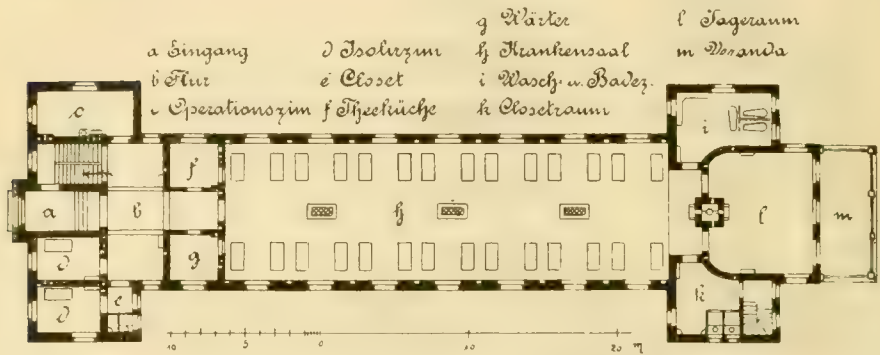 a Eingang
b Flur
c Operationszim
d Isolirzim
e Closet
f Theeküche
g Wärter
h Krankensaal
i Wasch- u. Badez.
k Closetraum
l Tageraum
m Veranda
c
i
f
a
b
h
l
m
d
g
d
e
k
10 5 0 10 20 m